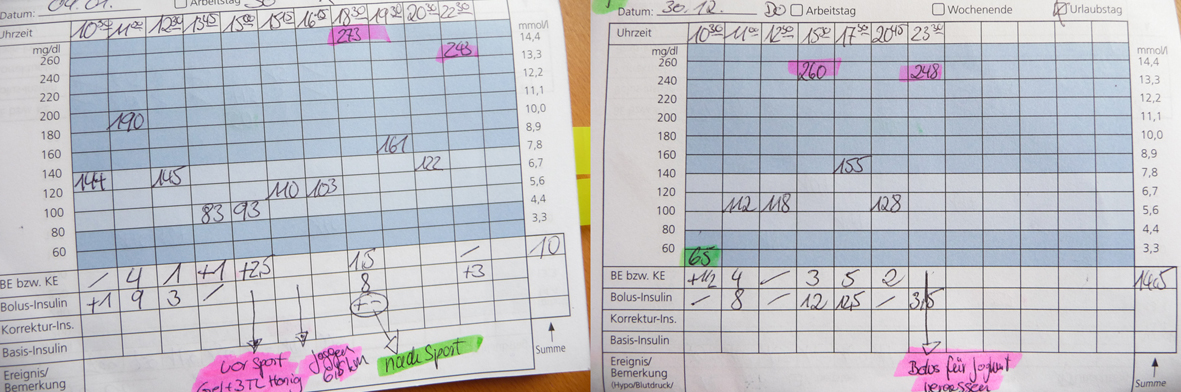 Datum: 04.01. Arbeitstag
Uhrzeit 10³⁰ 11⁰⁰ 12³⁰ 13⁴⁵ 15⁰⁰ 15¹⁵ 18³⁰ 19³⁰ 20³⁰ 22³⁰ mmol/l
mg/dl 273 14,4
260 243 13,3
240 12,2
220 11,1
200 190 10,0
180 8,9
160 161 7,8
140 144 145 122 6,7
120 110 103 5,6
100 83 93 4,4
80 3,3
60
BE bzw. KE / 4 1 +1 +2,5 1,5 / 10
Bolus-Insulin +1 9 3 / 8 +3
Korrektur-Ins.
Basis-Insulin
Ereignis/ vor Sport Joggen nach Sport Summe
Bemerkung +3 TL Honig 6,8 km
Datum: 30.12. Do Arbeitstag Wochenende Urlaubstag
Uhrzeit 10³⁰ 11⁰⁰ 12³⁰ 15⁰⁰ 17³⁰ 20⁴⁵ 23³⁰ mmol/l
mg/dl 14,4
260 260 248 13,3
240
220 12,2
200 11,1
180 10,0
160 155 8,9
140 7,8
120 6,7
100 112 118 128 5,6
80 4,4
60 65 3,3
BE bzw. KE +1/2 4 / 3 5 2 14,5
Bolus-Insulin / 8 / 12 12,5 / 3,5
Korrektur-Ins.
Basis-Insulin
Ereignis/ Bolus für Joghurt Summe
Bemerkung vergessen
(Hypo/Blutdruck/